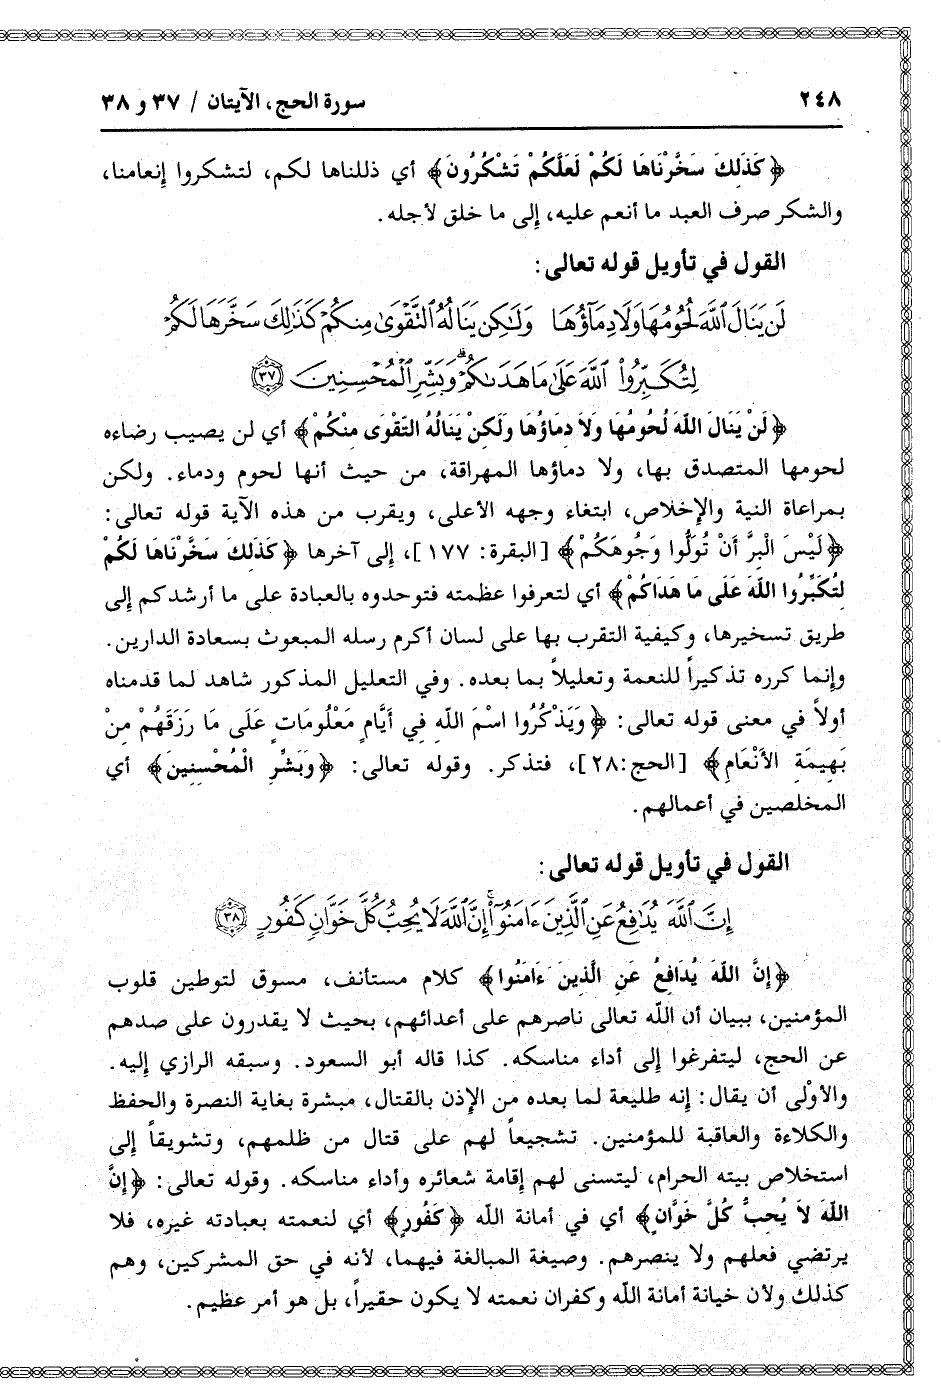 ٢٤٨ سورة الحج، الآيتان / ٣٧ و ٣٨
﴿كَذَلِكَ سَخَّرْنَاهَا لَكُمْ لَعَلَّكُمْ تَشْكُرُونَ﴾ أي ذللناها لكم، لتشكروا إنعامنا،
والشكر صرف العبد ما أنعم عليه، إلى ما خلق لأجله.
القول في تأويل قوله تعالى:
لَن يَنَالَ ٱللَّهَ لُحُومُهَا وَلَا دِمَآؤُهَا وَلَٰكِن يَنَالُهُ ٱلتَّقْوَىٰ مِنكُمْ كَذَٰلِكَ سَخَّرَهَا لَكُمْ
لِتُكَبِّرُواْ ٱللَّهَ عَلَىٰ مَا هَدَىٰكُمْ ۗ وَبَشِّرِ ٱلْمُحْسِنِينَ ٣٧
﴿لَنْ يَنَالَ اللَّهَ لُحُومُهَا وَلاَ دِمَاؤُهَا وَلَكِنْ يَنَالُهُ التَّقْوَى مِنْكُمْ﴾ أي لن يصيب رضاءه
لحومها المتصدق بها، ولا دماؤها المهراقة، من حيث أنها لحوم ودماء. ولكن
بمراعاة النية والإخلاص، ابتغاء وجهه الأعلى، ويقرب من هذه الآية قوله تعالى:
﴿لَيْسَ الْبِرَّ أَنْ تُوَلُّوا وَجُوهَكُمْ﴾ [البقرة: ١٧٧]، إلى آخرها ﴿كَذَلِكَ سَخَّرْنَاهَا لَكُمْ
لِتُكَبِّرُوا اللَّهَ عَلَى مَا هَدَاكُمْ﴾ أي لتعرفوا عظمته فتوحدوه بالعبادة على ما أرشدكم إلى
طريق تسخيرها، وكيفية التقرب بها على لسان أكرم رسله المبعوث بسعادة الدارين.
وإنما كرره تذكيراً للنعمة وتعليلاً بما بعده. وفي التعليل المذكور شاهد لما قدمناه
أولاً في معنى قوله تعالى: ﴿وَيَذْكُرُوا اسْمَ اللَّهِ فِي أَيَّامٍ مَعْلُومَاتٍ عَلَى مَا رَزَقَهُمْ مِنْ
بَهِيمَةِ الأَنْعَامِ﴾ [الحج:٢٨]، فتذكر. وقوله تعالى: ﴿وَبَشِّرِ الْمُحْسِنِينَ﴾ أي
المخلصين في أعمالهم.
القول في تأويل قوله تعالى:
إِنَّ ٱللَّهَ يُدَٰفِعُ عَنِ ٱلَّذِينَ ءَامَنُوٓاْ ۗ إِنَّ ٱللَّهَ لَا يُحِبُّ كُلَّ خَوَّانٍ كَفُورٍ ٣٨
﴿إِنَّ اللَّهَ يُدَافِعُ عَنِ الَّذِينَ ءَامَنُوا﴾ كلام مستأنف، مسوق لتوطين قلوب
المؤمنين، ببيان أن الله تعالى ناصرهم على أعدائهم، بحيث لا يقدرون على صدهم
عن الحج، ليتفرغوا إلى أداء مناسكه. كذا قاله أبو السعود. وسبقه الرازي إليه.
والأوْلى أن يقال: إنه طليعة لما بعده من الإذن بالقتال، مبشرة بغاية النصرة والحفظ
والكلاءة والعاقبة للمؤمنين. تشجيعاً لهم على قتال من ظلمهم، وتشويقاً إلى
استخلاص بيته الحرام، ليتسنى لهم إقامة شعائره وأداء مناسكه. وقوله تعالى: ﴿إِنَّ
اللَّهَ لاَ يُحِبُّ كُلَّ خَوَّانٍ﴾ أي في أمانة الله ﴿كَفُورٍ﴾ أي لنعمته بعبادته غيره، فلا
يرتضي فعلهم ولا ينصرهم. وصيغة المبالغة فيهما، لأنه في حق المشركين، وهم
كذلك ولأن خيانة أمانة الله وكفران نعمته لا يكون حقيراً، بل هو أمر عظيم.